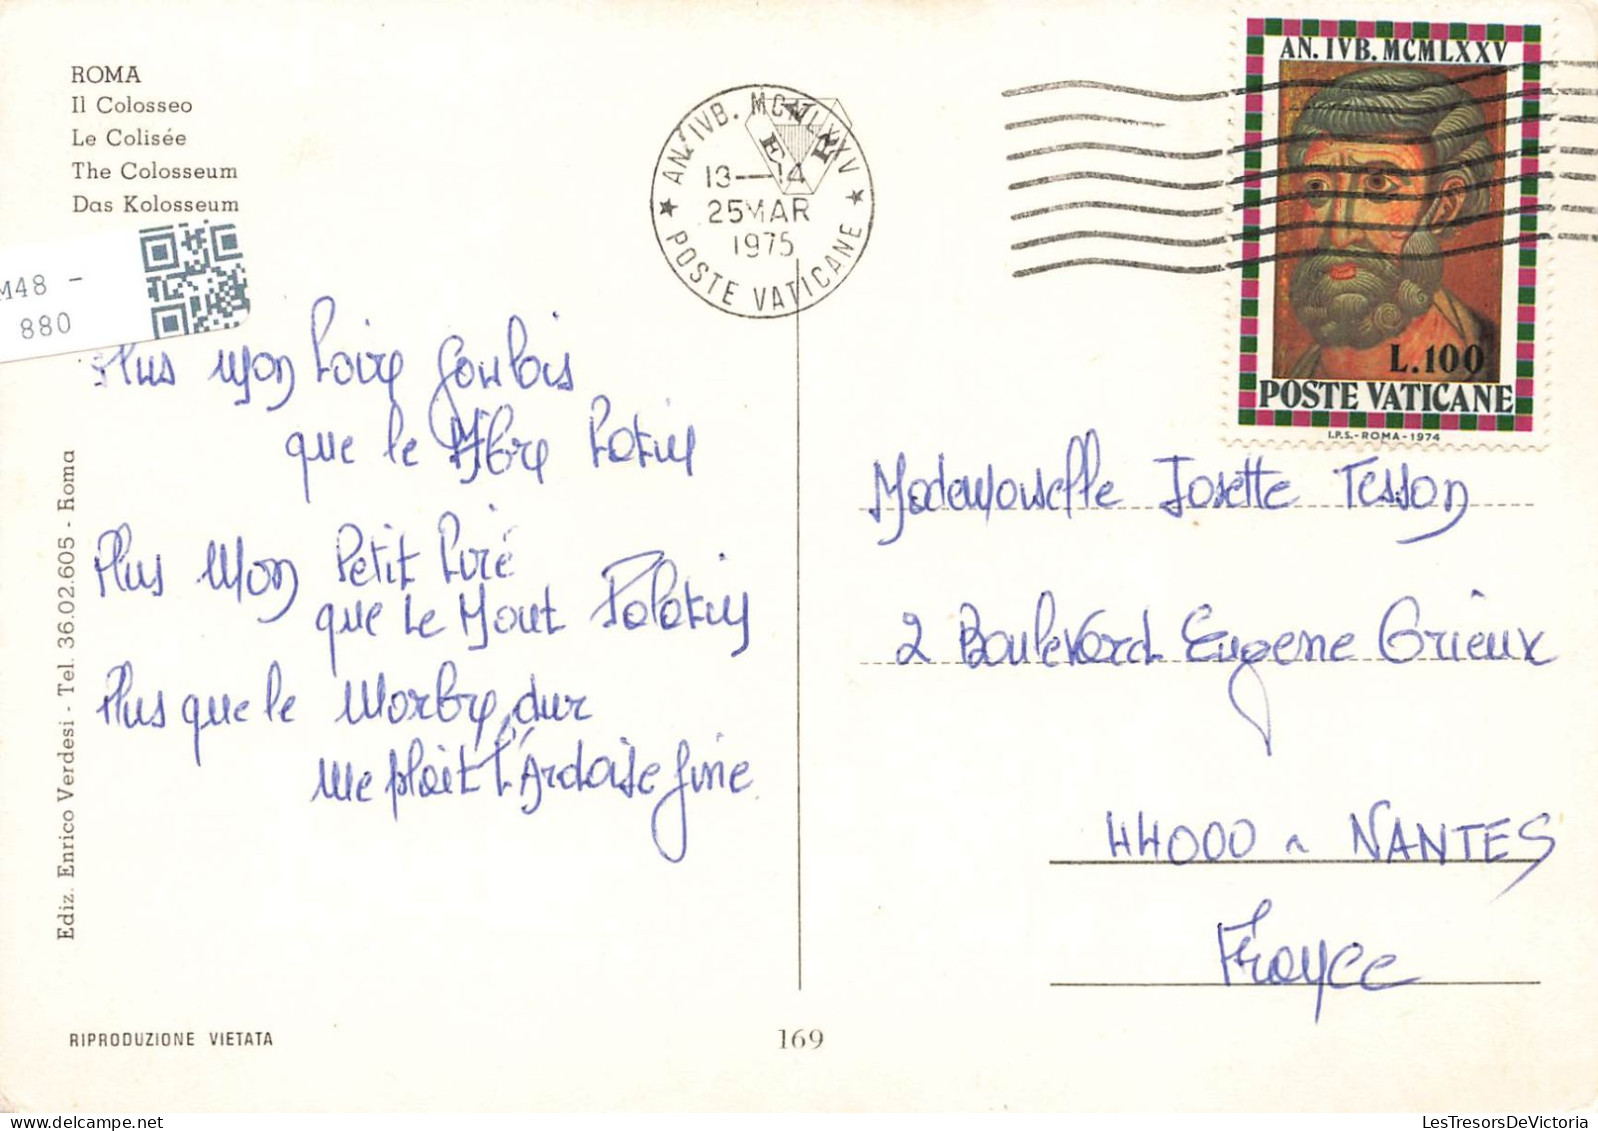 ROMA
Il Colosseo
Le Colisée
The Colosseum
Das Kolosseum
M48 -
880
Plus Mon Loire Gaulois
que le Tibre Latin
Plus Mon Petit Liré
que le Mont Palatin
Plus que le Marbre dur
me plait l'Ardoise fine
Ediz. Enrico Verdesi - Tel. 36.02.605 - Roma
RIPRODUZIONE VIETATA
169
AN. IVB. MCMLXXV
E R
13—14
25 MAR
1975
POSTE VATICANE
AN. IVB. MCMLXXV
L.100
POSTE VATICANE
I.P.S.-ROMA-1974
Mademoiselle Josette Tesson
2 Boulevard Eugene Orieux
44000 ~ NANTES
France
LesTresorsDeVictoria